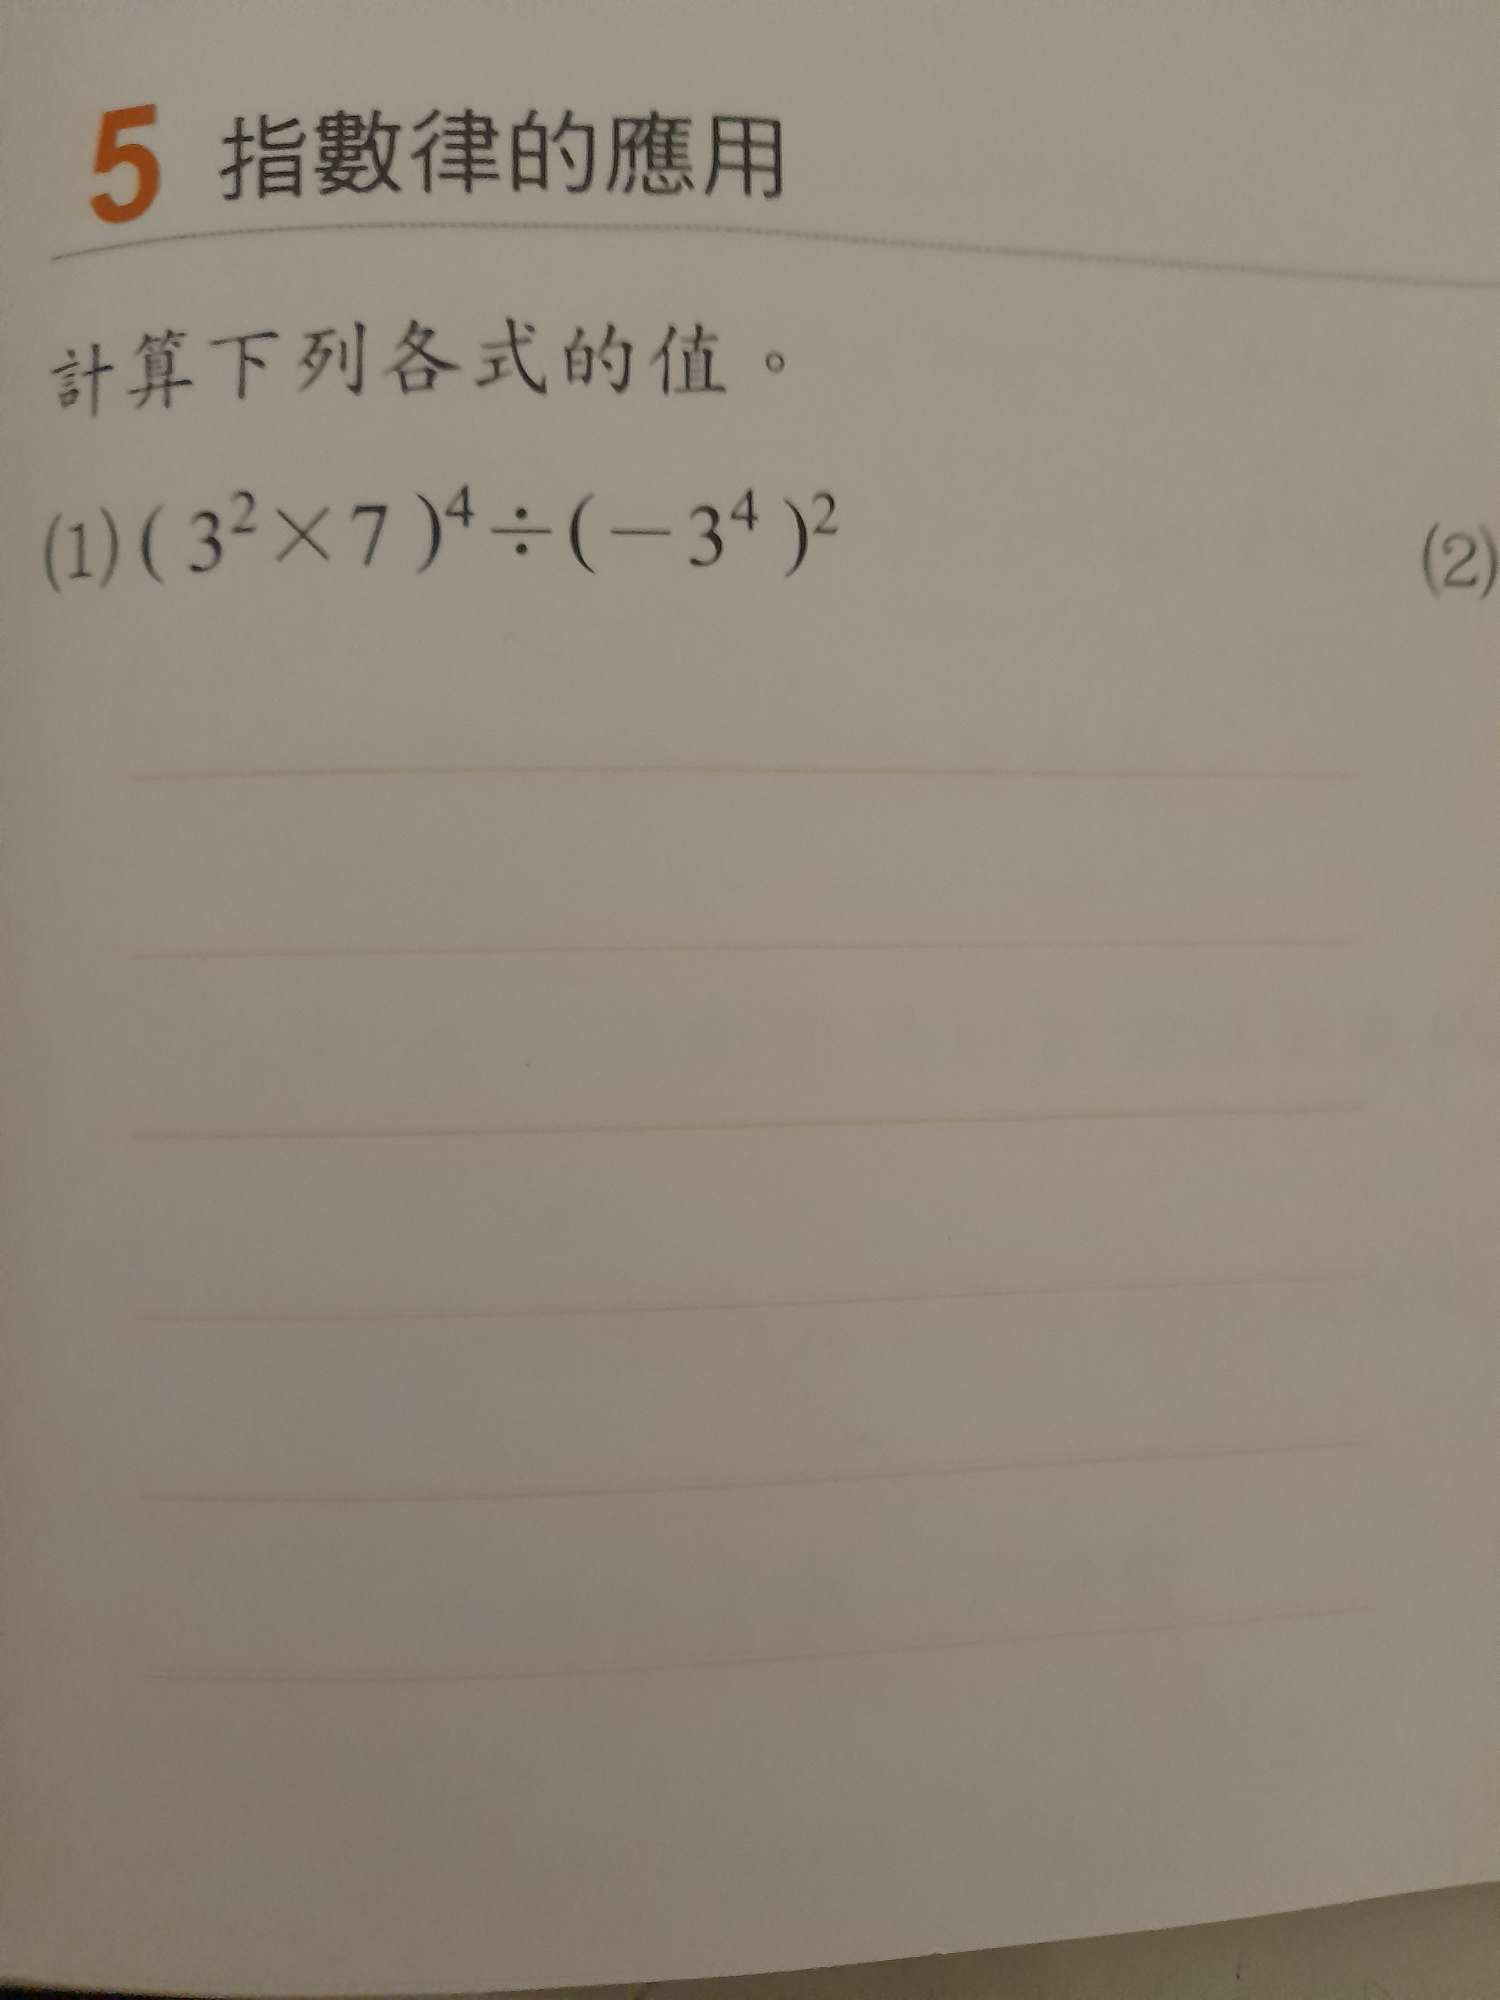 5 指數律的應用
計算下列各式的值。
(1) ( 3² × 7 )⁴ ÷ ( − 3⁴ )² (2)